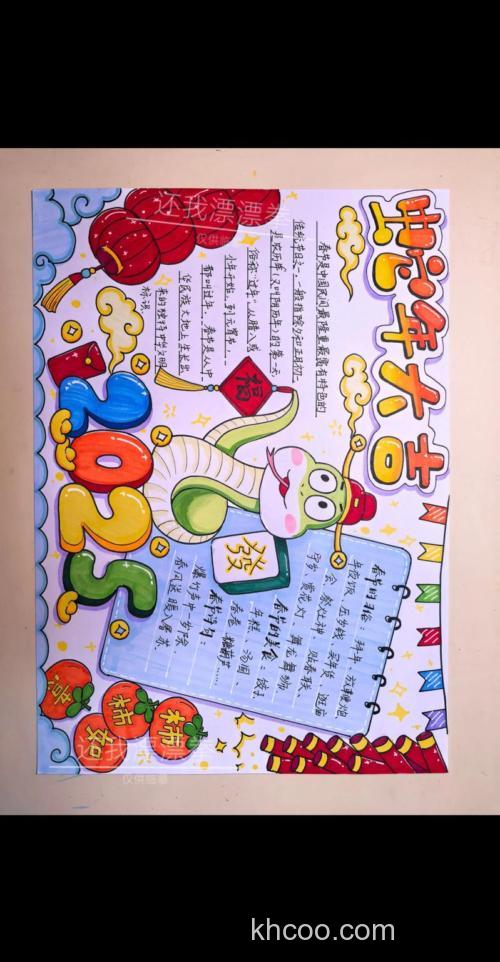 蛇年大吉
春节是中国民间最隆重最富有特色的
传统节日之一,一般指除夕和正月初一
是农历年(又叫阴历年)的第一天
俗称"过年",从腊八或
小年开始,到元宵节,
都叫过年,春节是从中
华民族大地上生长出
来的独特中华文明
标识
福
2025
發
春节的习俗:拜年、放鞭炮
年夜饭、压岁钱、买年货、逛庙
会、祭灶神、贴春联
守岁、赏花灯、舞龙舞狮
春节的美食:饺子
年糕、汤圆
春卷、糖葫芦……
春节诗句:
爆竹声中一岁除
春风送暖入屠苏
柿
柿
如
意
还我漂漂拳
仅供临摹
还我漂漂拳
仅供临摹
khcoo.com